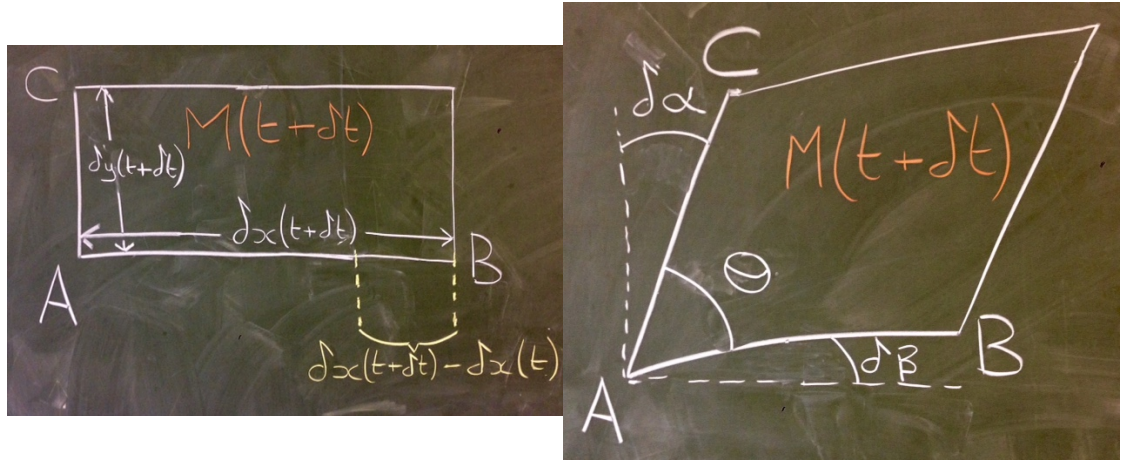 C
M(t+δt)
δy(t+δt)
δx(t+δt)
A
B
δx(t+δt) - δx(t)
C
δα
M(t+δt)
θ
B
δβ
A